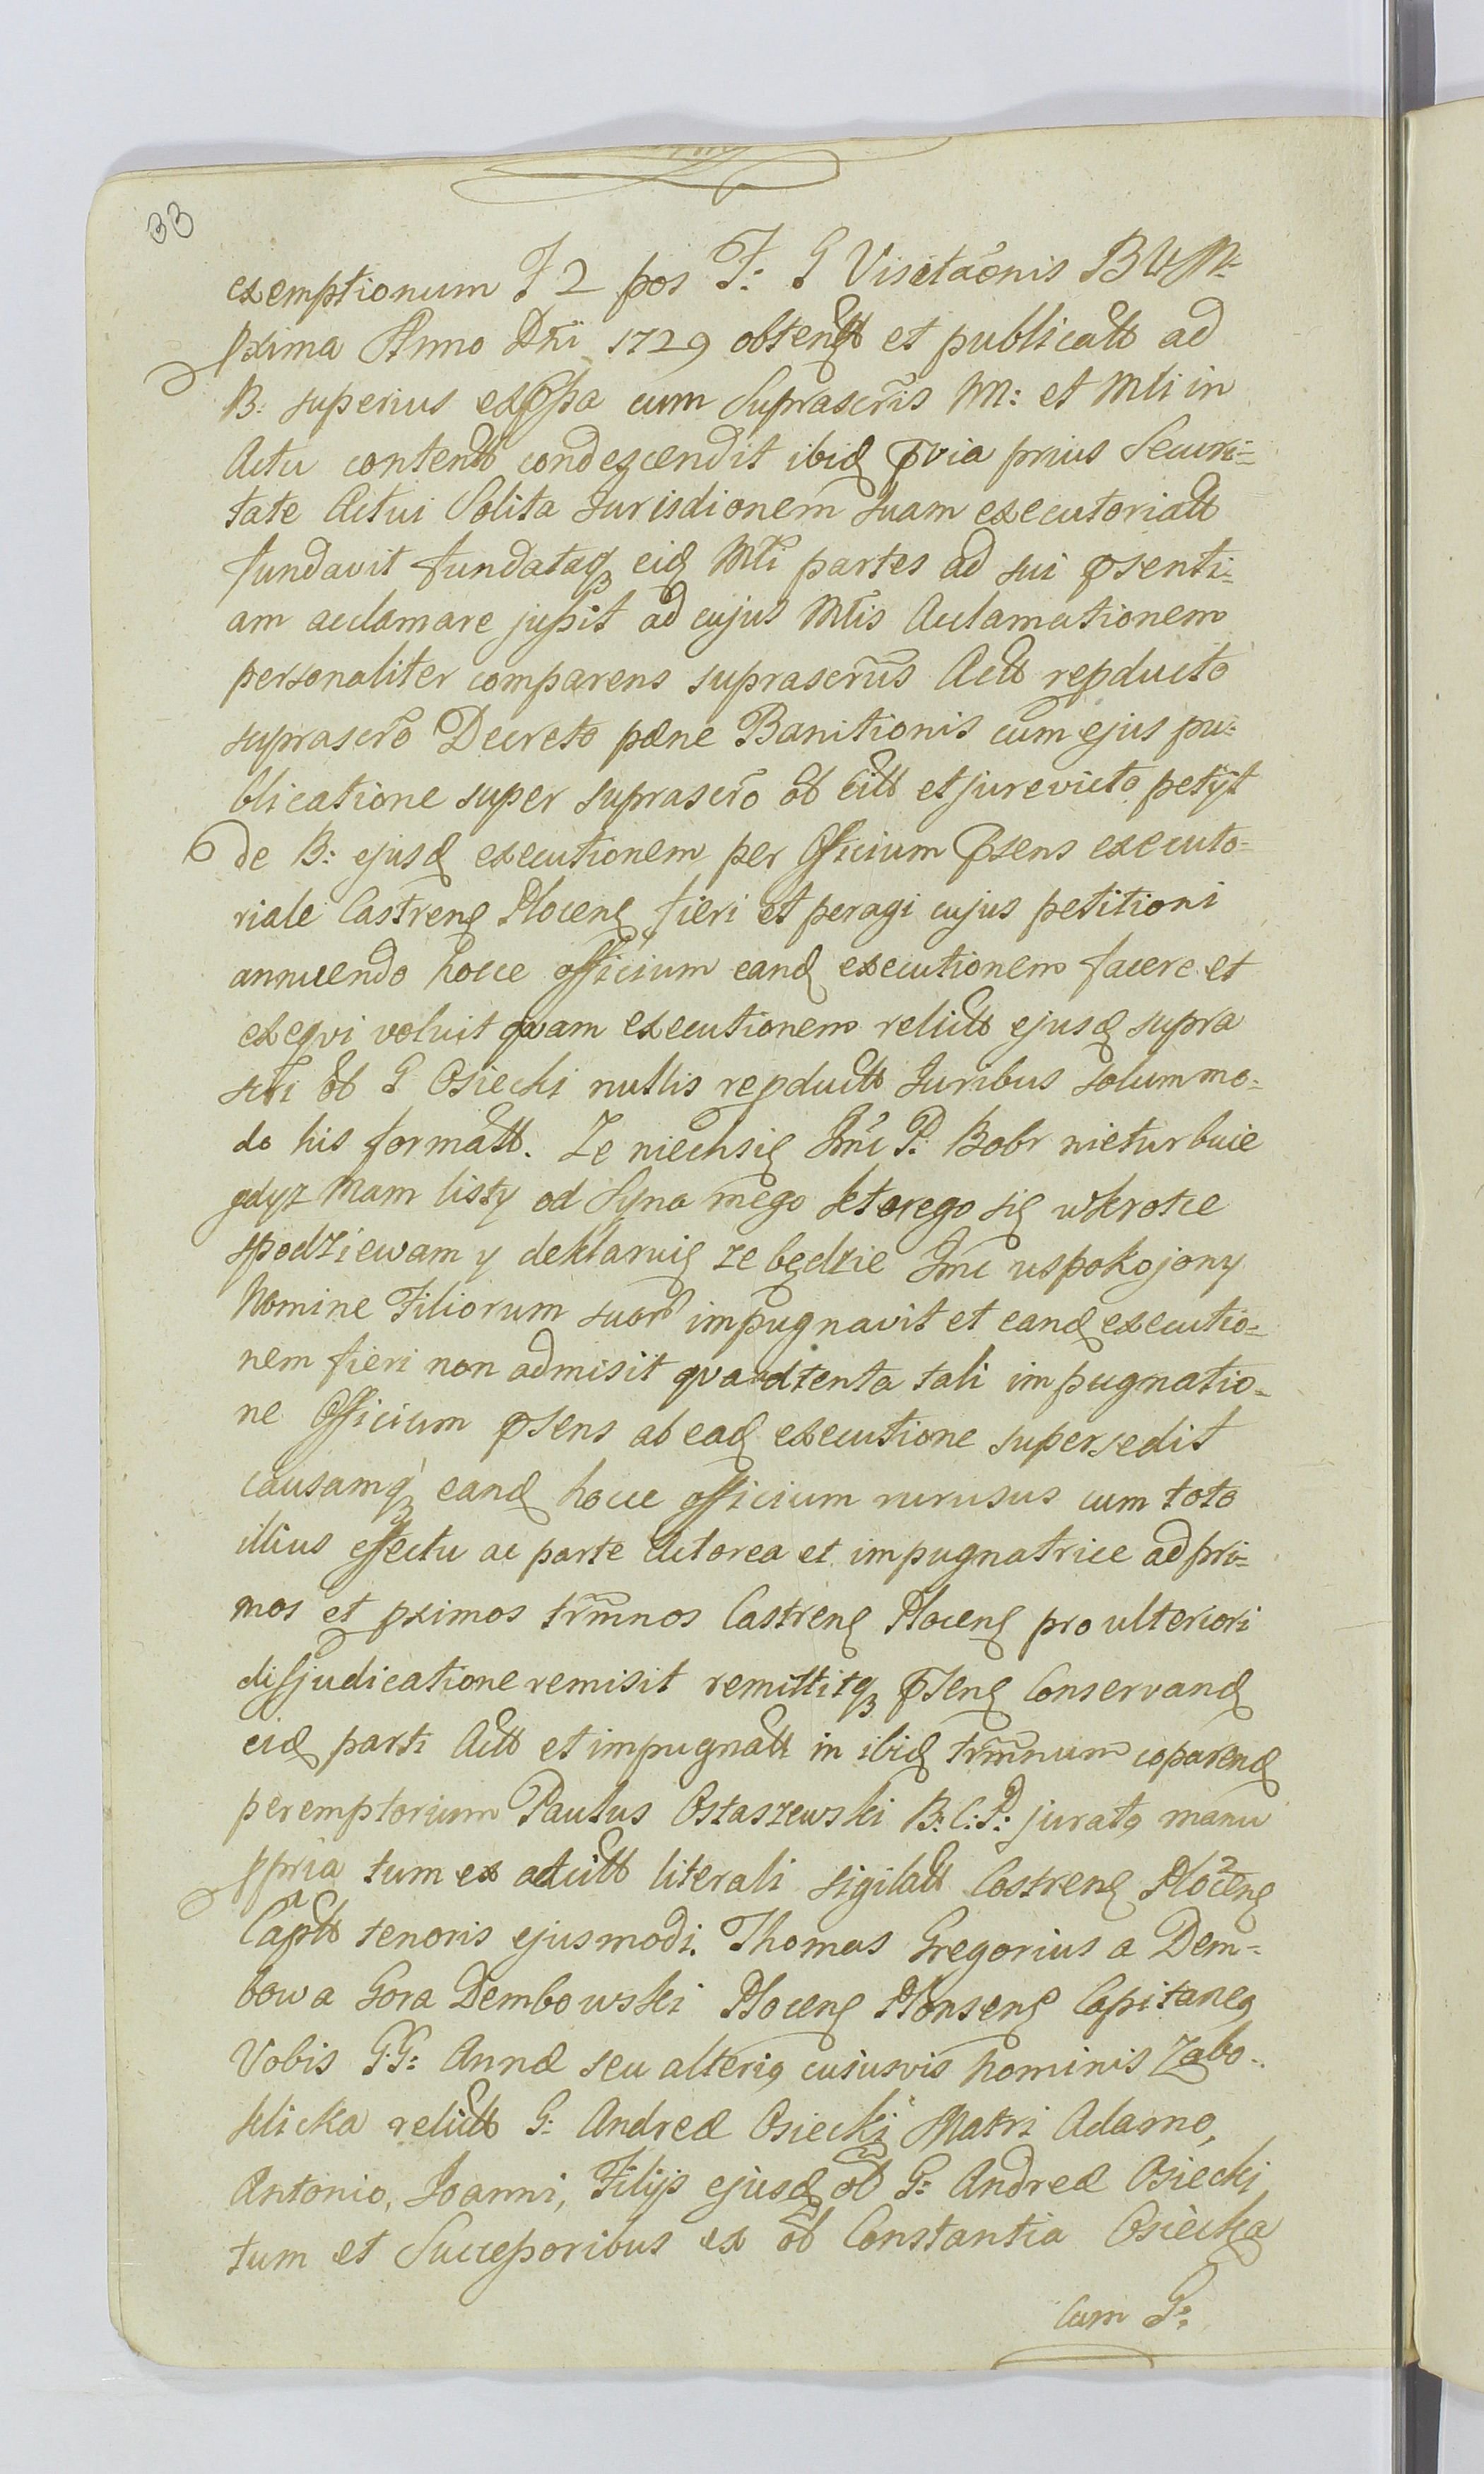 33
exemptionum F 2 pos F: G Visitaõnis BVM:
pxima Anno Dñi 1729 obtentt et publicatt ad
B: superius exp̃ssa cum Suprascr̃is M: et Mti in
Actu contentt condescendit ibid p̃via prius Securi=
tate Actui Solita Jurisdionem̃ suam executoriatt
fundavit fundatáq3 eid Mti partes ad sui p̃senti=
am acclamare jussit ad cujus Mtis Aclamationem
personaliter comparens suprascrũs Actt repducto
suprascrõ Decreto pæne Banitionis cum ejus pu=
blicatione super suprascrõ ob Citt et jurevicto petÿt
de B: ejusd executionem per Officium p̃sens executo=
riale Castrens Plocens fieri et peragi cujus petitioni
annuendo hocce officium eand executionem facere et
exeqvi voluit qvam executionem relictt ejusd supra
scr̃i ob G Osiecki nullis repductt Juribus solummo=
do his formatt. Ze niechsię Jmc P. Bobr nieturbuie
gdyz mam listy od Syna mego ktorego się wkrotce
spodziewam y deklaruię ze będzie Jmc uspokojony
Nomine Filiorum suor impugnavit et eand executio=
nem fieri non admisit qva attenta tali impugnatio=
ne Officium p̃sens ab ead executione supersedit
causamq3 eand hocce officium rurusus cum toto
illius effectu ac parte Actorea et impugnatrice ad pri=
mos et pximos trm̃nos Castrens Plocens pro ulteriori
disjudicatione remisit remittitq3 p̃sens Conservand
eid parti Actt et impugnatt in ibid trm̃num coparend
peremptorium Paulus Ostaszewski B:C:P: juratg manu
ppria tum ex actictt literali sigilatt Castrens Plocens
Captt tenoris ejusmodi. Thomas Gregorius a Dem=
bowa Gora Dembowski Plocens Plonsens Capitaneg
Vobis GG: Annæ seu alterig cujusvis nominis Zabo=
klicka relictt G: Andreæ Osiecki Matri Adamo,
Antonio, Joanni, Filijs ejusd ob G: Andreæ Osiecki
tum et Successoribus ex ob Constantia Osiecka
Cum G: